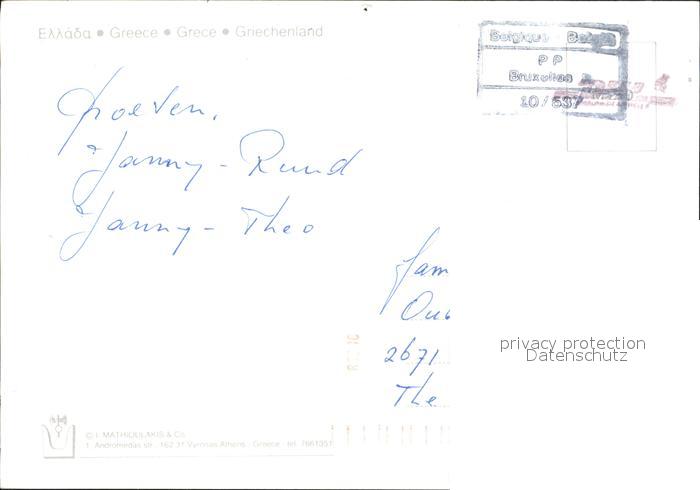 Ελλάδα • Greece • Grece • Griechenland
Belgique - België
P P
Bruxelles
10/537
Groeten,
Janny - Ruud
Janny - Theo
Fam
2671
The
privacy protection
Datenschutz
© I. MATHIOULAKIS & Co.
1. Andromedas str. 162 31 Vyronas Athens - Greece - tel. 7661351